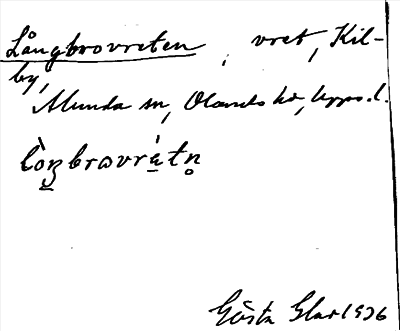 Långbrovreten, vret, Kil-
by,
Alunda sn, Olands hd, Upps. l.
lòŋbrωvrètn̥
Gösta Glar 1936